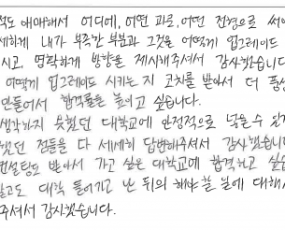 적도 애매해서 어디에, 어떤 과로, 어떤 전형으로 써야
세하게 내가 부족한 부분과 그것을 어떻게 업그레이드
시고, 명확하게 방향을 제시해주셔서 감사했습니다
어떻게 업그레이드 시키는 지 코치를 받아서 더 풍성
만들어서 합격률을 높이고 싶습니다.
생각하지 못했던 대학교에 안정적으로 넣을 수 있게
했던 점들을 다 세세히 답변해주셔서 감사했습니다
컨설팅도 받아서 가고 싶은 대학교에 합격하고 싶습
말고도 대학 들어가고 난 뒤의 해야할 일에 대해서
주셔서 감사했습니다.